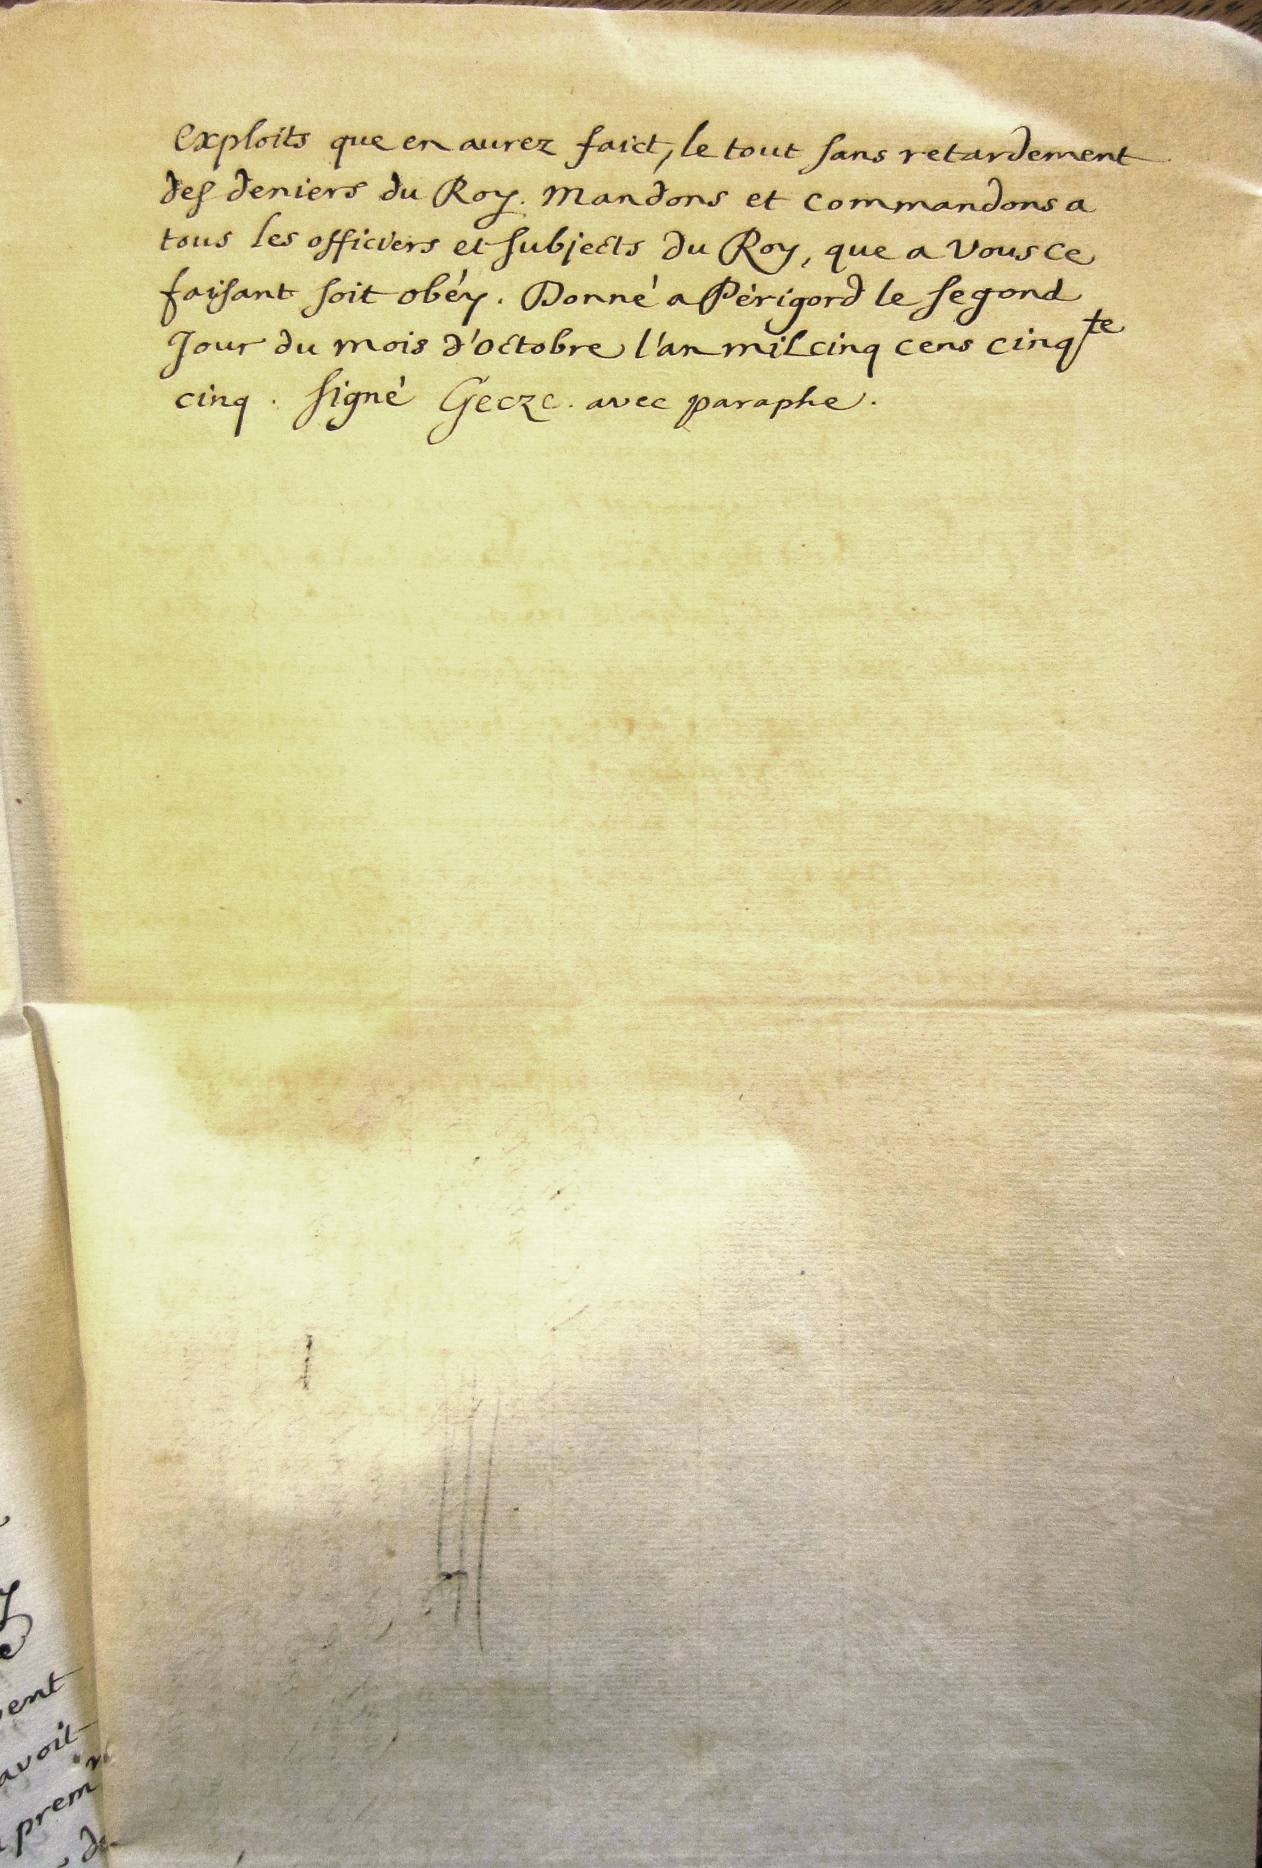 exploits que en aurez faict, le tout sans retardement
des deniers du Roy. Mandons et commandons a
tous les officiers et subjects du Roy, que a vous ce
faisant soit obéy. Donné a Périgord le segond
Jour du mois d'octobre l'an mil cinq cens cinqte
cinq. signé Geczc. avec paraphe.
avoit
prem
de